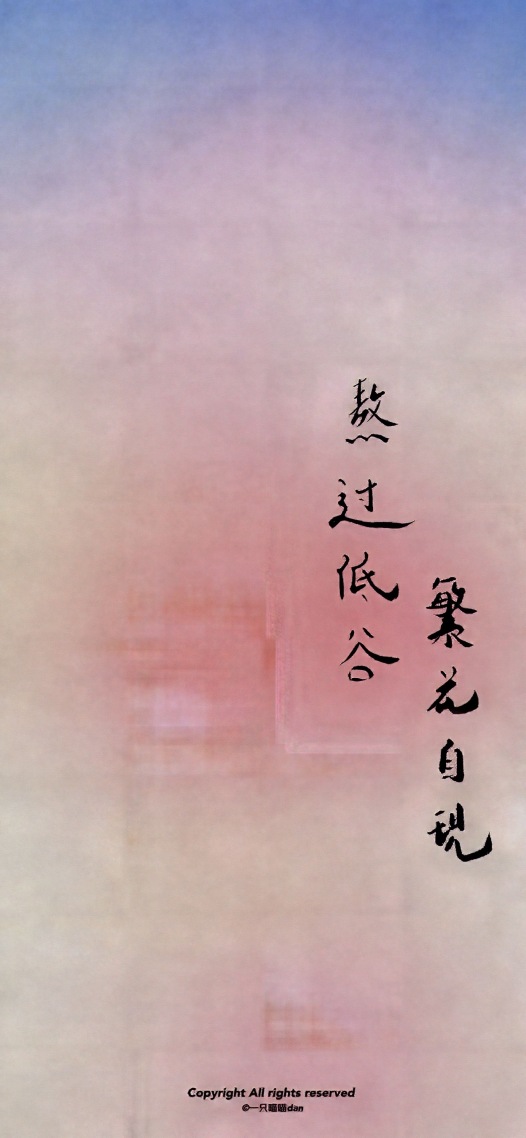 熬过低谷
繁花自現
Copyright All rights reserved
©一只喵喵dan